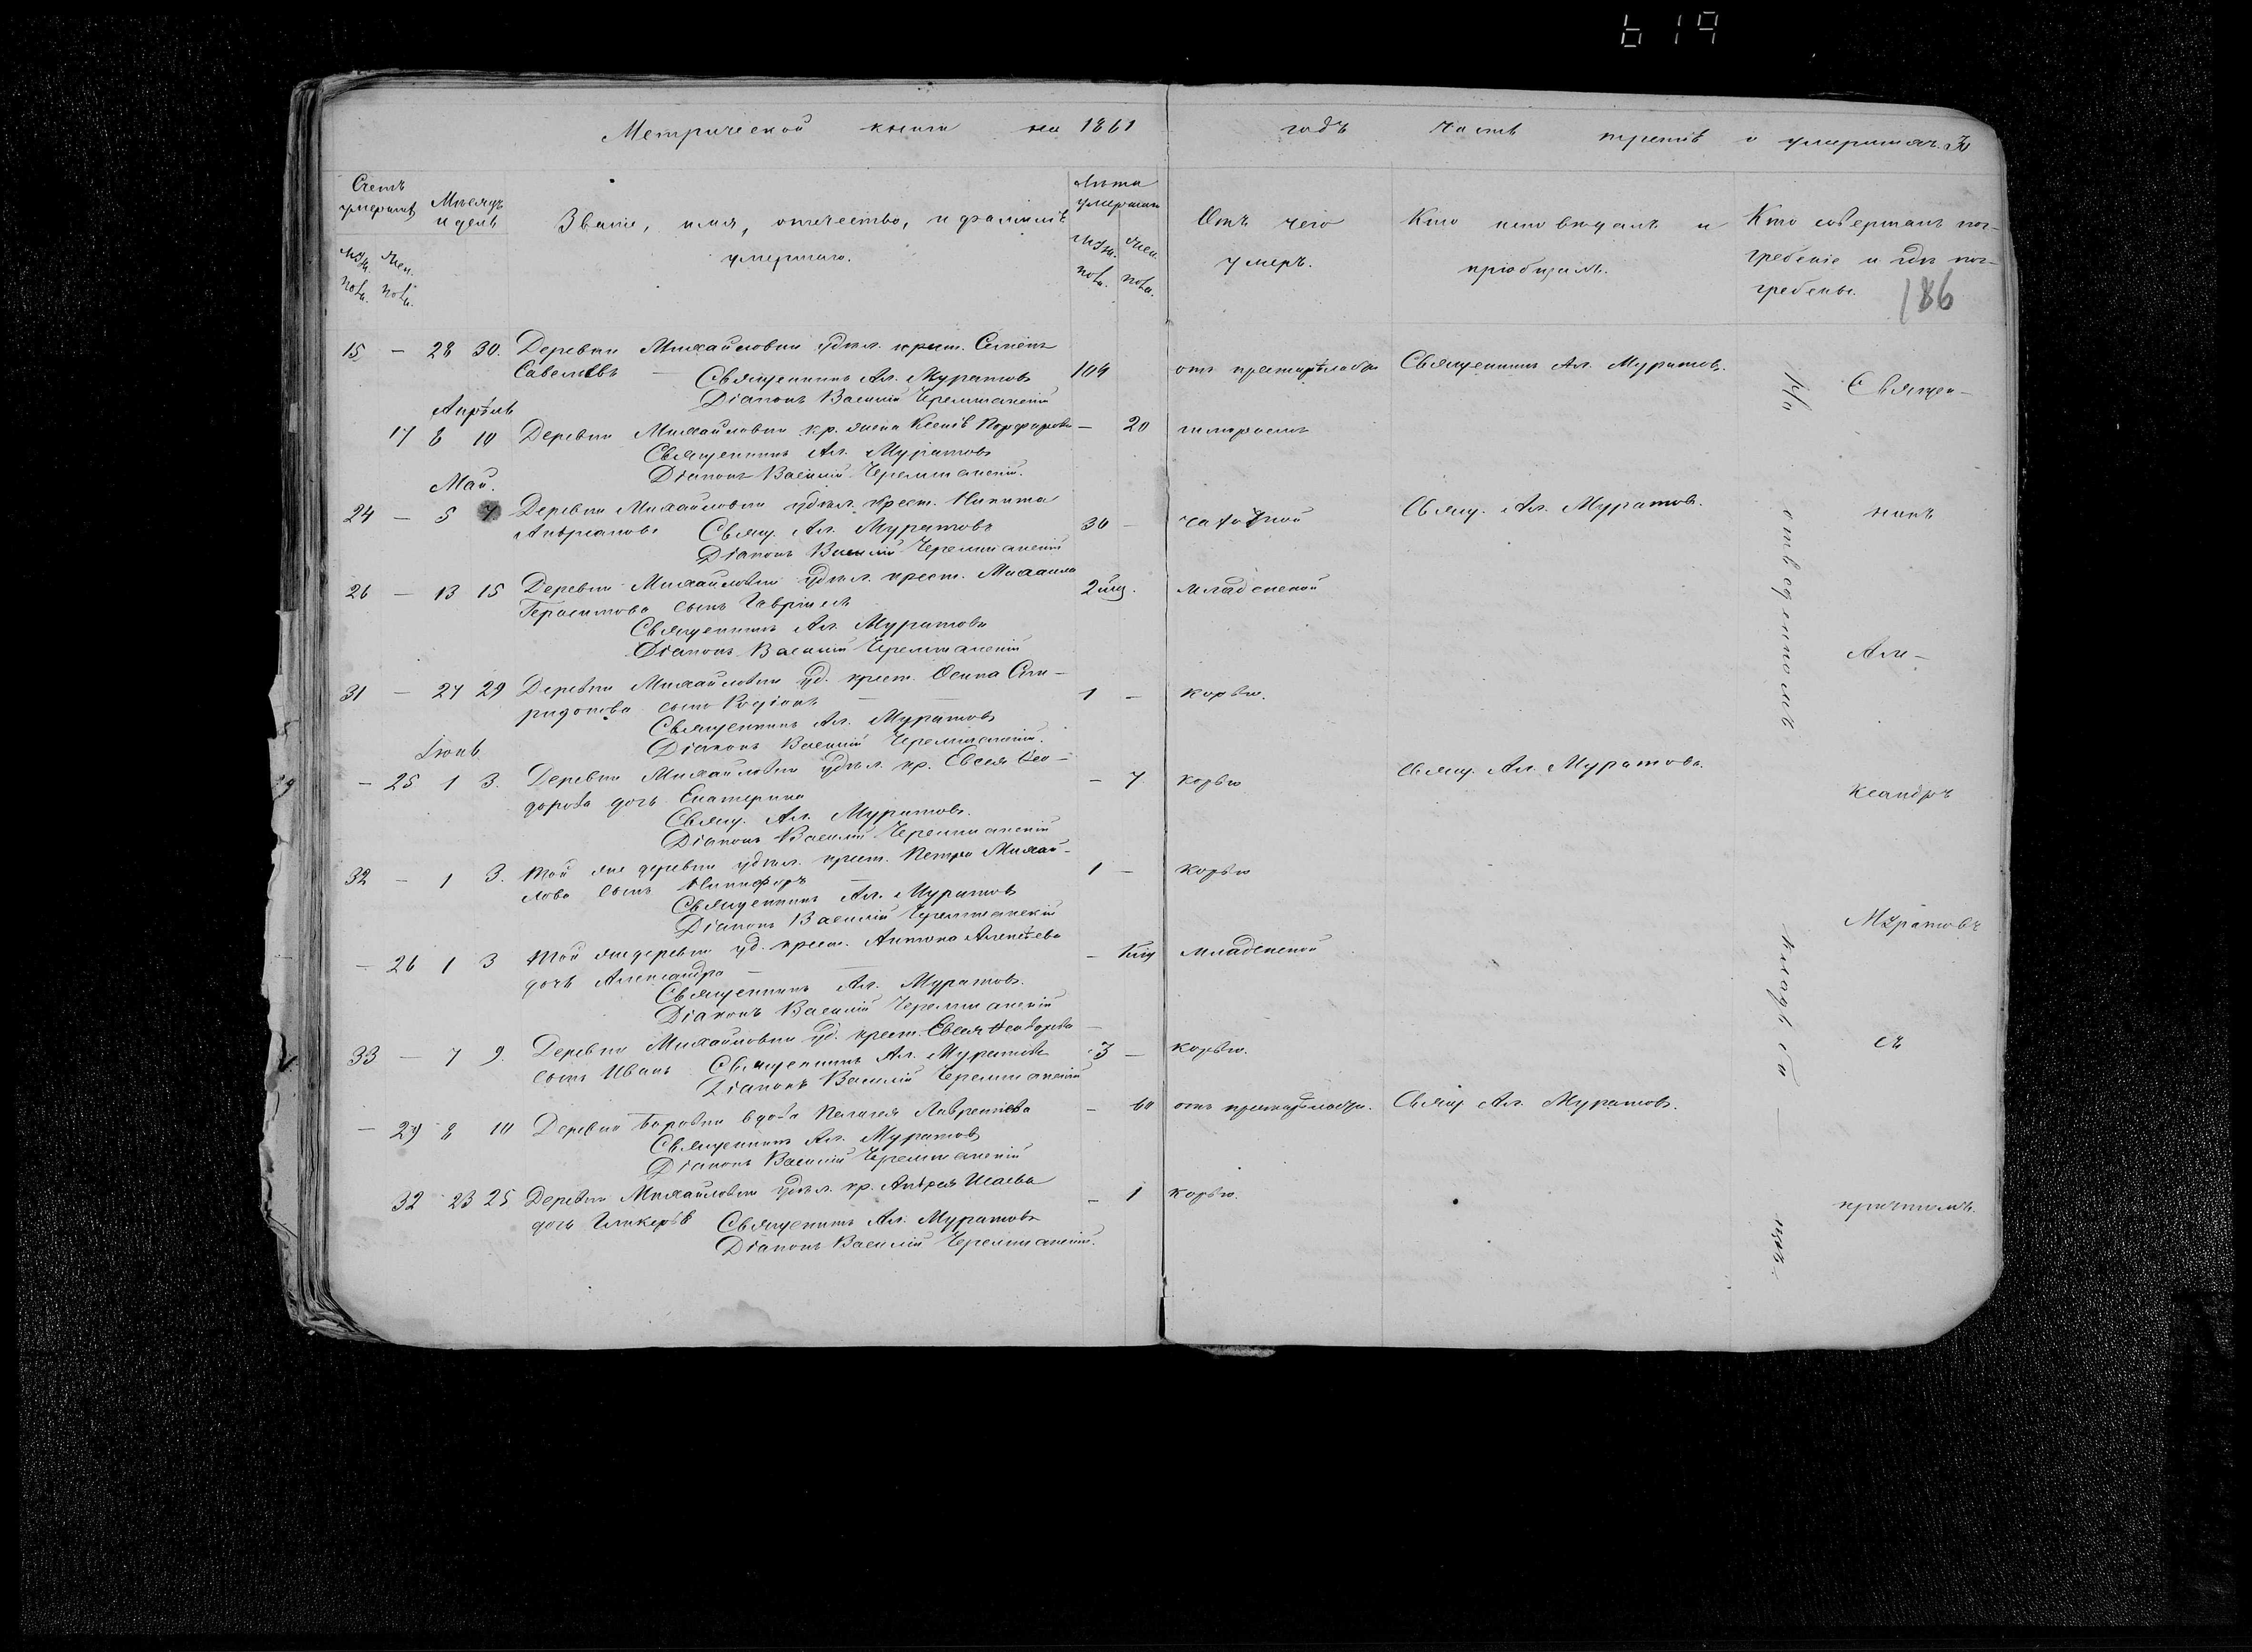 619
Метрической книги на 1861 годъ часть третія о умершихъ.
Счетъ умершихъ
Мѣсяцъ и день
Званіе, имя, отчество, и фамилія умершаго.
Лѣта умершаго
Отъ чего умеръ.
Кто исповѣдалъ и пріобщилъ.
Кто совершалъ пог-
гребеніе и гдѣ пог-
гребены.
186
Муж. пола. Жен. пола.
Муж. пола. Жен. пола.
15 — 28 30. Деревни Михайловки удѣл. крест. Семенъ
Савельевъ — Священникъ Ал. Муратовъ 104 отъ престарѣлости Священникъ Ал. Муратовъ.
Діаконъ Василій Черемшанскій
Апрѣль
17 8 10 Деревни Михайловки кр. жена Ксенія Порфирова — 20
Священникъ Ал. Муратовъ
Діаконъ Василій Черемшанскій.
Май.
24 — 5 7 Деревни Михайловки удѣл. крест. Никита
Андреановъ Свящ. Ал. Муратовъ 30 — чахоткой Свящ. Ал. Муратовъ.
Діаконъ Василій Черемшанскій
26 — 13 15 Деревни Михайловки удѣл. крест. Михаила
Герасимова сынъ Гавріилъ младенской
Священникъ Ал. Муратовъ
Діаконъ Василій Черемшанскій
31 — 27 29 Деревни Михайловки уд. крест. Осипа Спи-
ридонова сынъ Родіонъ — 1 — корью.
Священникъ Ал. Муратовъ
Діаконъ Василій Черемшанскій.
Іюнь
— 25 1 3. Деревни Михайловки удѣл. кр. Евсея Ѳео-
дорова дочь Екатерина — 7 корью Свящ. Ал. Муратовъ.
Свящ. Ал. Муратовъ.
Діаконъ Василій Черемшанскій
32 — 1 3. Той же деревни удѣл. крест. Петра Михай-
лова сынъ Никифоръ — 1 — корью
Священникъ Ал. Муратовъ
Діаконъ Василій Черемшанскій
— 26 1 3 Той же деревни уд. крест. Антона Алексѣева
дочь Александра — младенской
Священникъ Ал. Муратовъ.
Діаконъ Василій Черемшанскій
33 — 7 9. Деревни Михайловки уд. крест. Евсея Ѳеодорова
сынъ Иванъ Священникъ Ал. Муратовъ 3 — корью.
Діаконъ Василій Черемшанскій
— 29 8 10 Деревни Боровки вдова Пелагея Лаврентьева — 60 отъ престарѣлости. Свящ. Ал. Муратовъ.
Священникъ Ал. Муратовъ
Діаконъ Василій Черемшанскій
32 23 25 Деревни Михайловки удѣл. кр. Андрея Исаева — 1 корью.
дочь Гликерія Священникъ Ал. Муратовъ
Діаконъ Василій Черемшанскій.
На отведенномъ кладбищѣ.
Священ-
никъ
Але-
ксандръ
Муратовъ
съ
причтомъ.